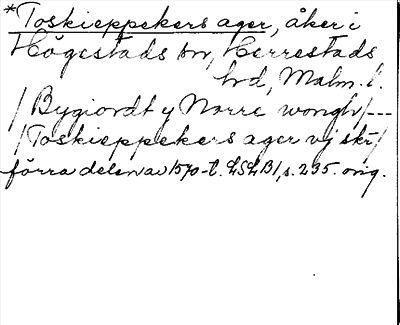 *Toskieppekers ager, åker i
Högestads sn, Herrestads
hrd, Malm. l.
/Bygiordt y Norre wongh/---
/Toskieppekers ager vj skr/
förra delen av 1570-t. LSLB1, s. 235. orig.